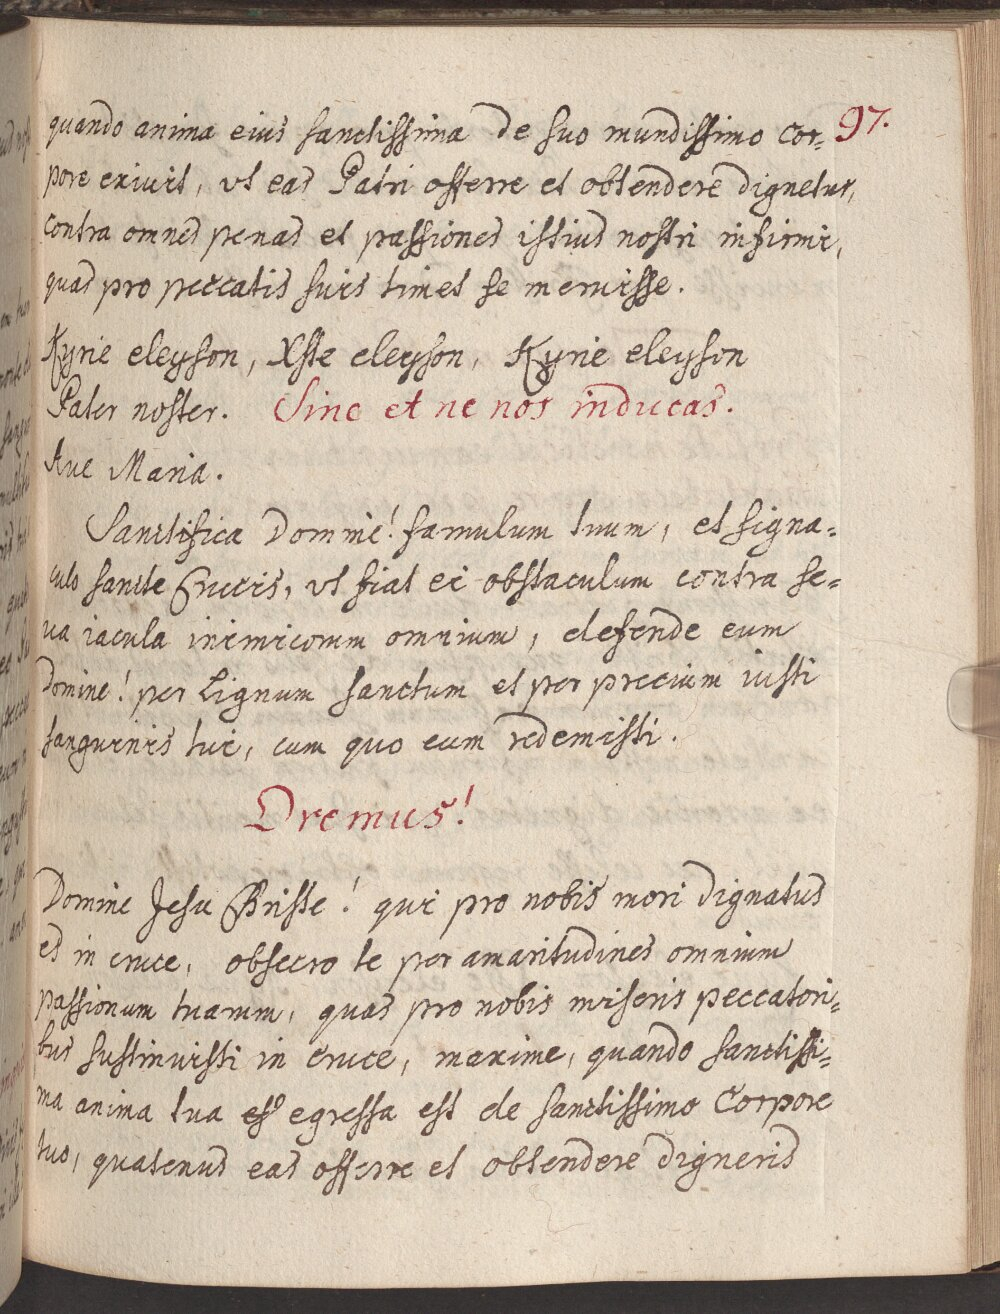 97.
quando anima eius sanctissima de suo mundissimo cor-
pore exiuit, vt eas Patri offerre et obtendere dignetur,
contra omnes penas et passiones istius nostri infirmi,
quas pro peccatis suis timet se meruisse.
Kyrie eleyson, Xste eleyson, Kyrie eleyson
Pater noster. Sine et ne nos inducas.
Aue Maria.
Sanctifica Domine! famulum tuum, et signa-
culo sancte Crucis, vt fiat ei obstaculum contra se-
ua iacula inimicorum omnium, defende eum
Domine! per Lignum sanctum et per precium iusti
sanguinis tui, cum quo eum redemisti.
Oremus!
Domine Jesu Christe! qui pro nobis mori dignatus
es in cruce, obsecro te per amaritudines omnium
passionum tuarum, quas pro nobis miseris peccatori-
bus sustinuisti in cruce, maxime, quando sanctissi-
ma anima tua egressa est de sanctissimo Corpore
tuo, quatenus eas offerre et obtendere digneris